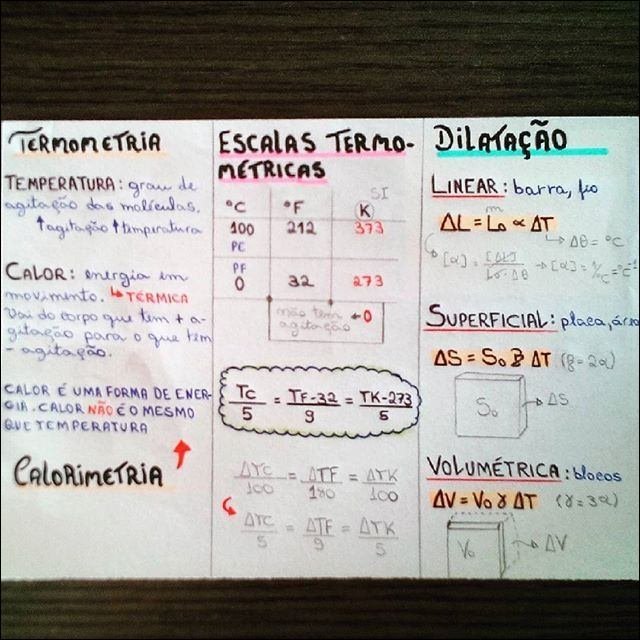 TERMOMETRIA
TEMPERATURA: grau de
agitação das moléculas.
↑agitação ↑temperatura
CALOR: energia em
movimento. ↳ TÉRMICA
Vai do corpo que tem + a-
gitação para o que tem
- agitação.
CALOR É UMA FORMA DE ENER-
GIA. CALOR NÃO É O MESMO
QUE TEMPERATURA
CALORIMETRIA
ESCALAS TERMO-
MÉTRICAS
SI
°C °F K
100 212 373
PE
PF
0 32 273
não tem ← 0
agitação
Tc/5 = TF-32/9 = TK-273/5
ΔTC/100 = ΔTF/180 = ΔTK/100
ΔTC/5 = ΔTF/9 = ΔTK/5
DILATAÇÃO
LINEAR: barra, fio
m
ΔL = L₀ ∝ ΔT
↳ Δθ = °C
[α] = [ΔL]/L₀·Δθ → [α] = 1/°C = °C⁻¹
SUPERFICIAL: placa, área
ΔS = S₀ β ΔT (β = 2α)
S₀ → ΔS
VOLUMÉTRICA: blocos
ΔV = V₀ γ ΔT (γ = 3α)
V₀ → ΔV